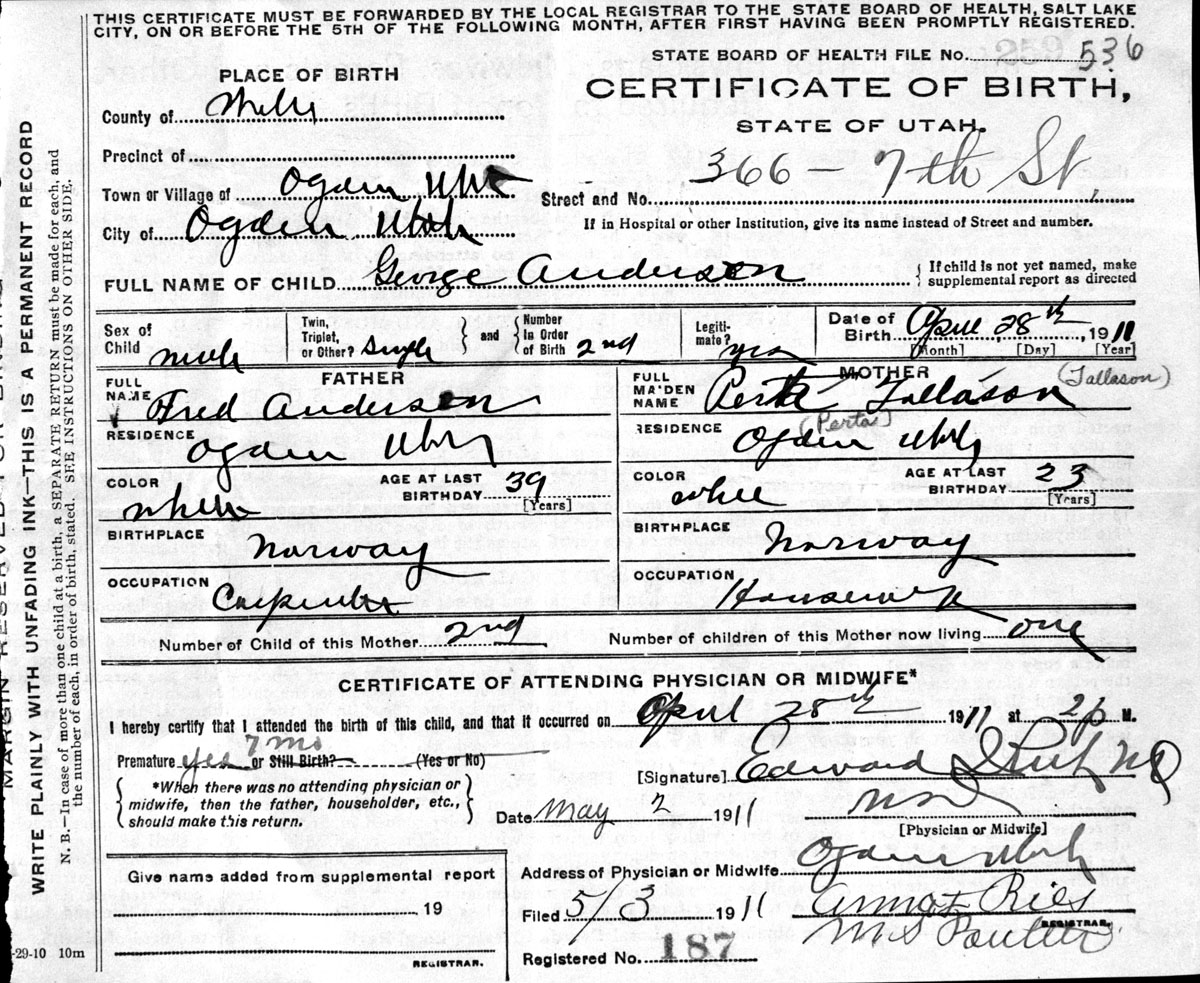 THIS CERTIFICATE MUST BE FORWARDED BY THE LOCAL REGISTRAR TO THE STATE BOARD OF HEALTH, SALT LAKE
CITY, ON OR BEFORE THE 5TH OF THE FOLLOWING MONTH, AFTER FIRST HAVING BEEN PROMPTLY REGISTERED.
STATE BOARD OF HEALTH FILE No. 536
PLACE OF BIRTH
CERTIFICATE OF BIRTH,
County of
STATE OF UTAH.
Precinct of
366 - 7th St.
Town or Village of Ogden Utah
Street and No.
City of Ogden Utah
If in Hospital or other Institution, give its name instead of Street and number.
FULL NAME OF CHILD George Andersen
If child is not yet named, make
supplemental report as directed
Sex of Child male
Twin, Triplet, or Other? Single
and
Number in Order of Birth 2nd
Legiti-mate? yes
Date of Birth April 28th, 1911
[Month] [Day] [Year]
FATHER
FULL NAME Fred Andersen
RESIDENCE Ogden Utah
COLOR white
AGE AT LAST BIRTHDAY 39
[Years]
BIRTHPLACE Norway
OCCUPATION Carpenter
MOTHER
(Tallason)
FULL MA'DEN NAME Tallason
(Perta)
RESIDENCE Ogden Utah
COLOR white
AGE AT LAST BIRTHDAY 23
[Years]
BIRTHPLACE Norway
OCCUPATION Housewife
Number of Child of this Mother 2nd
Number of children of this Mother now living one
CERTIFICATE OF ATTENDING PHYSICIAN OR MIDWIFE*
I hereby certify that I attended the birth of this child, and that it occurred on April 28th 1911 at 2 p M.
7 mo
Premature yes or Still Birth? (Yes or No)
*When there was no attending physician or
midwife, then the father, householder, etc.,
should make this return.
[Signature] Edward
Date May 2 1911
[Physician or Midwife]
Give name added from supplemental report
19
REGISTRAR.
Address of Physician or Midwife Ogden Utah
Filed 5/3 1911
REGISTRAR.
Registered No. 187
-29-10 10m
WRITE PLAINLY WITH UNFADING INK—THIS IS A PERMANENT RECORD
N. B.—In case of more than one child at a birth, a SEPARATE RETURN must be made for each, and
the number of each, in order of birth, stated SEE INSTRUCTIONS ON OTHER SIDE.